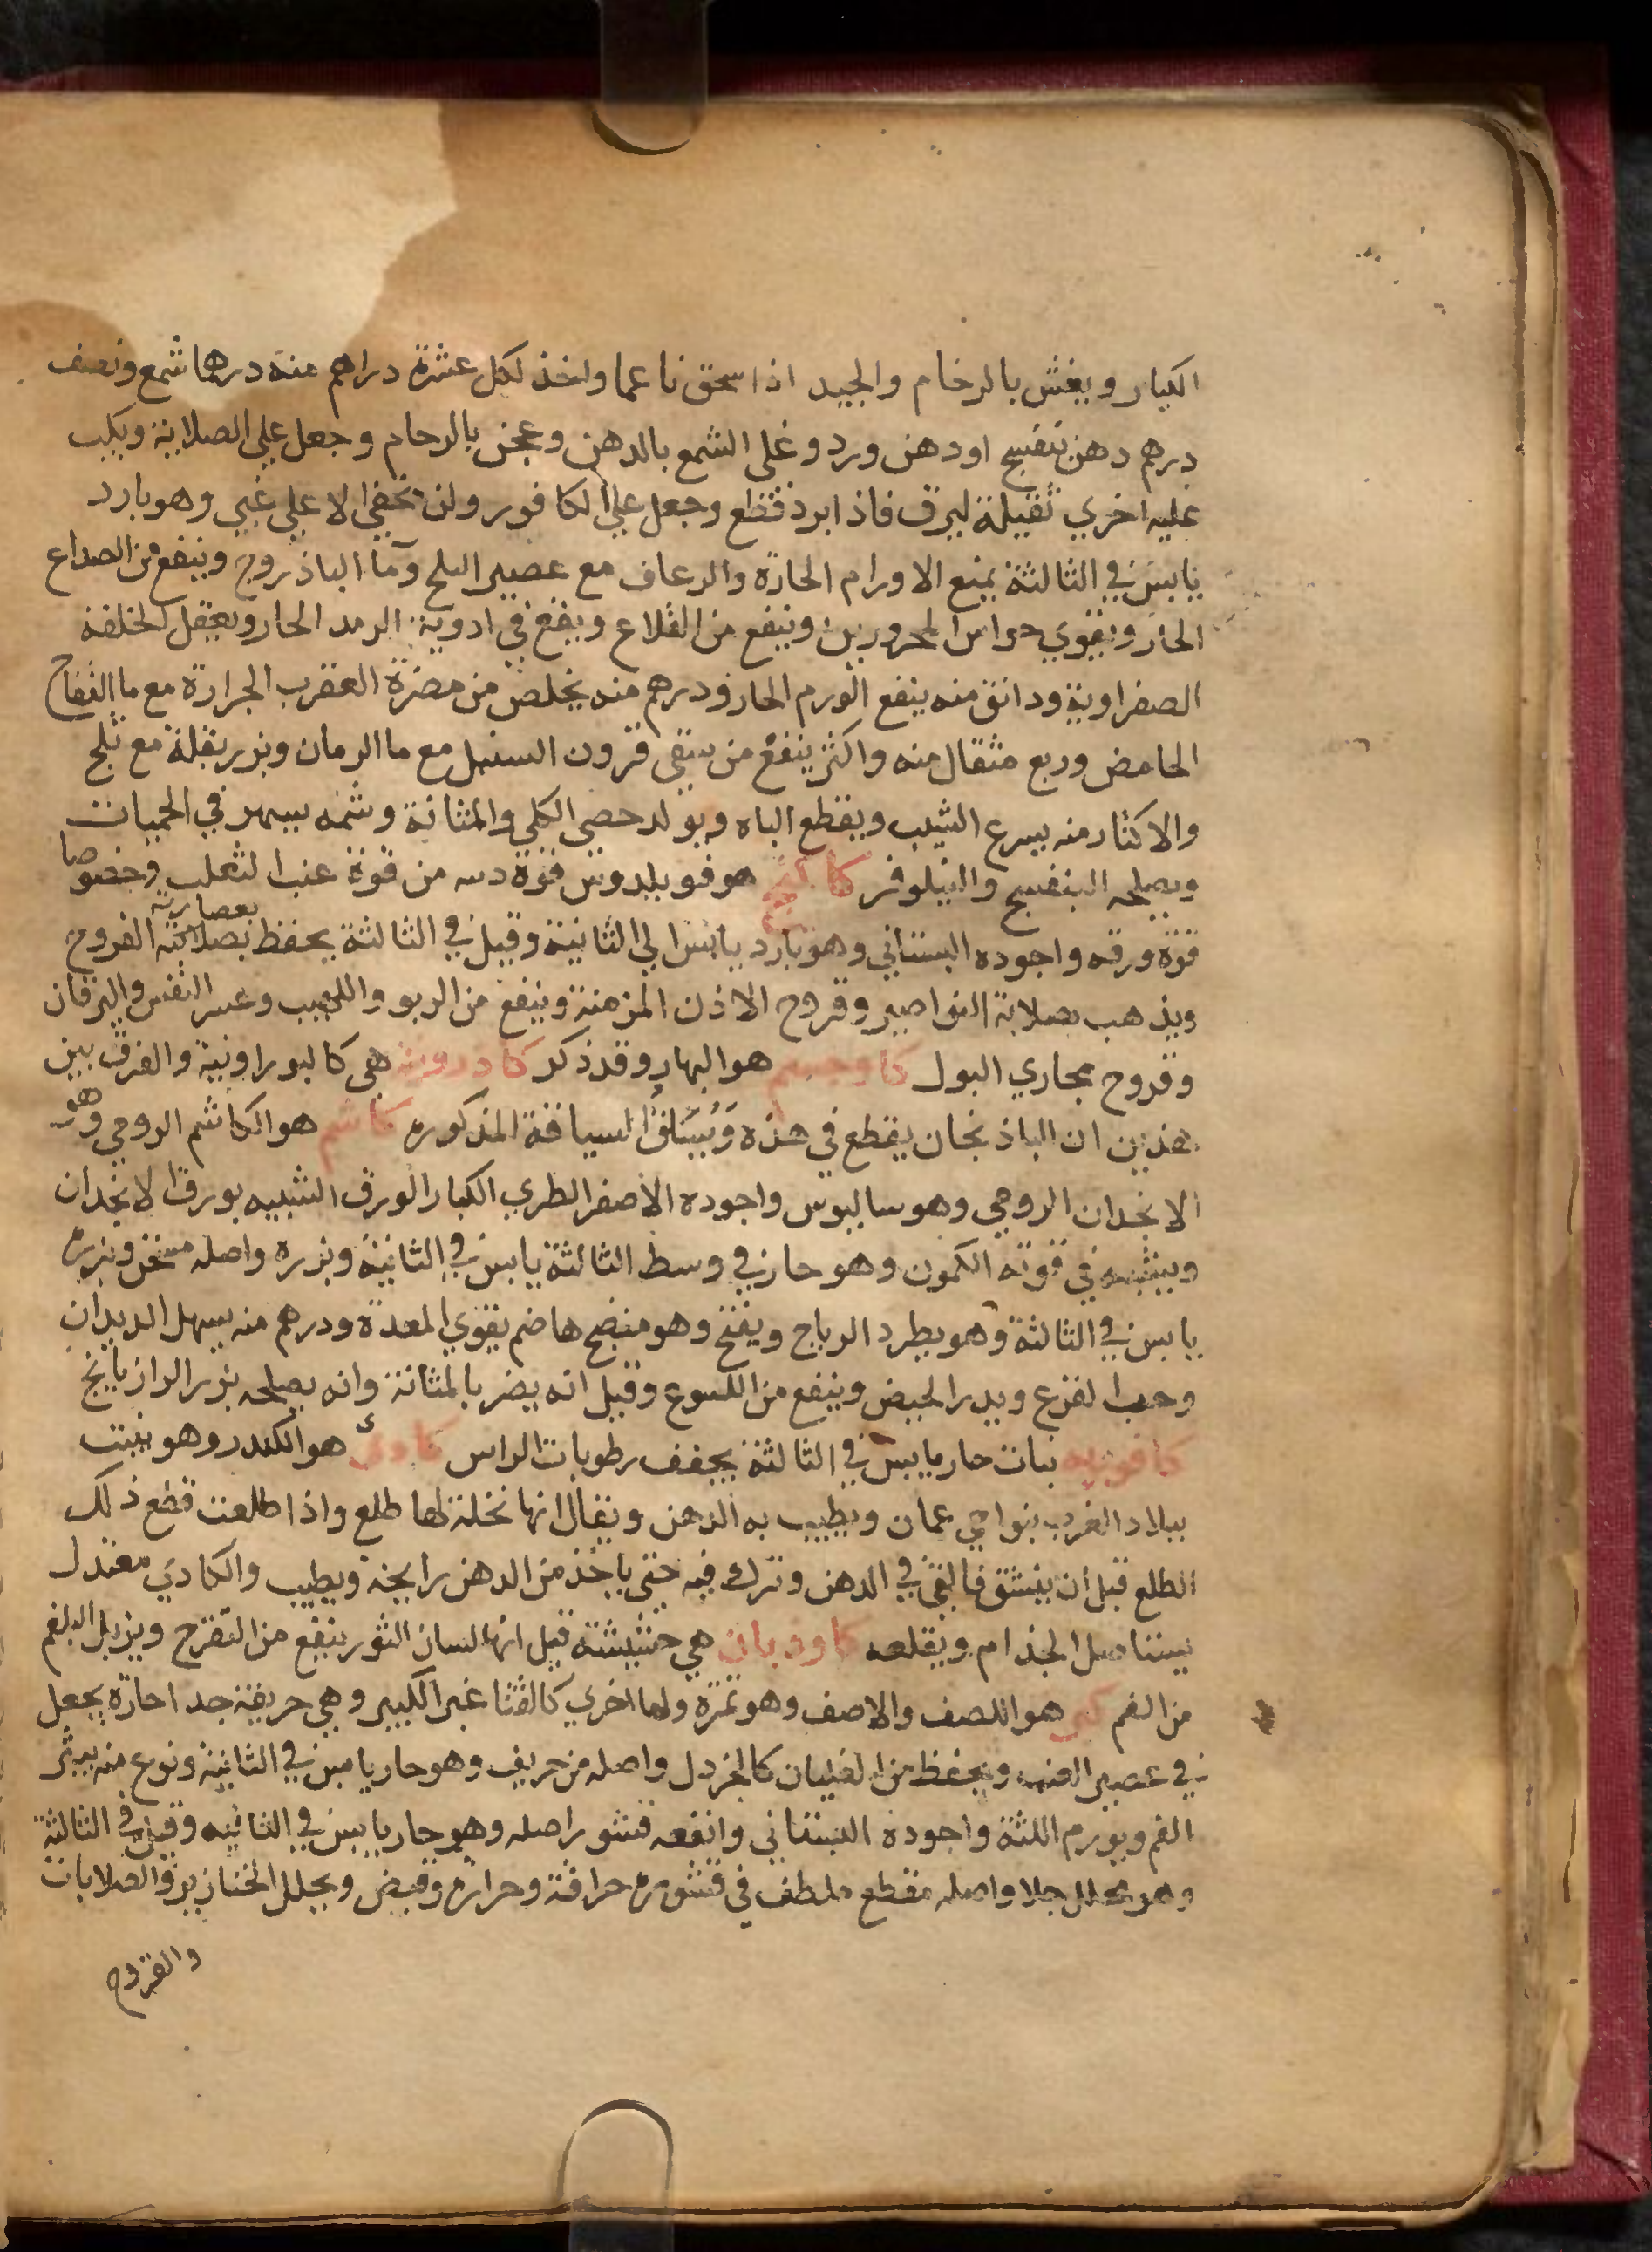 الكبار ويغش بالرخام والجيد اذا سحق ناعما واخذ لكل عشرة دراهم منه درهما شمع ونصف
درهم دهن بنفسج او دهن ورد وغلى الشمع بالدهن وعجن بالرخام وجعل علي الصلاية ويكب
عليه اخري ثقيلة ليرق فاذا برد قطع وجعل علي الكافور ولن يخفي الا علي غبي وهو بارد
يابس في الثالثة يمنع الاورام الحارة والرعاف مع عصير البلح وما الباذروج وينفع من الصداع
الحار ويقوي حواس المحرورين وينفع من القلاع ويقع في ادوية الرمد الحار ويعقل الخلفة
الصفراوية ودانق منه ينفع الورم الحار ودرهم منه يخلص من مضرة العقرب الجرارة مع ما التفاح
الحامض وربع مثقال منه واكثر ينفع من سقى قرون السنبل مع ما الرمان وبزر بقلة مع ثلج
والاكثار منه يسرع الشيب ويقطع الباه ويولد حصي الكلي والمثانة وشمه يسهر في الحميات
ويصلحه البنفسج والنيلوفر كاكنج هو فوبلدوس قوة من قوة عنب الثعلب وخصوصا
قوة ورقه واجوده البستاني وهو بارد يابس الي الثانية وقيل في الثالثة يحفظ بصلابته بعصارته القروح
ويذهب صلابة النواصير وقروح الاذن المزمنة وينفع من الربو واللهيب وعسر النفس واليرقان
وقروح مجاري البول كاوجشم هو البهار وقد ذكر كادرونه هي كالبوراونية والفرق بين
هذين ان الباذنجان يقطع في هذه السيافة المذكوره كاشم هو الكاشم الرومي وهو
الانجدان الرومي وهو سالبوس واجوده الاصفر الطري الكبار الورق الشبيه بورق الانجدان
ويشبه في قوته الكمون وهو حار في وسط الثالثة يابس في الثانية وبزره واصله مسخن وبزره
يابس في الثالثة وهو يطرد الرياح ويفتح وهو منضج هاضم يقوي المعدة ودرهم منه يسهل الديدان
وحب القرع ويدر الحيض وينفع من اللسوع وقيل انه يضر بالمثانة وانه يصلحه بزر الرازيانج
كافوريه نبات حار يابس في الثالثة يجفف رطوبات الراس كادى هو الكندر وهو ينبت
ببلاد العرب بنواحي عمان ويطيب به الدهن ويقال انها نخلة لها طلع واذا طلعت قطع ذلك
الطلع قبل ان ينشق فالقي في الدهن وترك فيه حتي ياخذ من الدهن رايحة ويطيب والكادي معتدل
يستاصل الجذام ويقلعه كاوزبان هي حشيشة قيل انها لسان الثور ينفع من التقرح ويزيل البلغم
من الفم كبر هو اللصف والاصف وهو ثمرة ولها اخري كالقثا غير الكبير وهي حريفة جدا حارة يجعل
في عصير العنب ويحفظ من الغليان كالخردل واصله من حريف وهو حار يابس في الثانية ونوع منه يبثر
الفم ويورم اللثة واجوده البستاني وانفعه قشور اصله وهو حار يابس في الثانيه وقيل في الثالثة
وهو محلل جلا واصله مقطع ملطف في قشوره حرافة وحراره وقبض ويحلل الخنازير والصلابات
والقروح